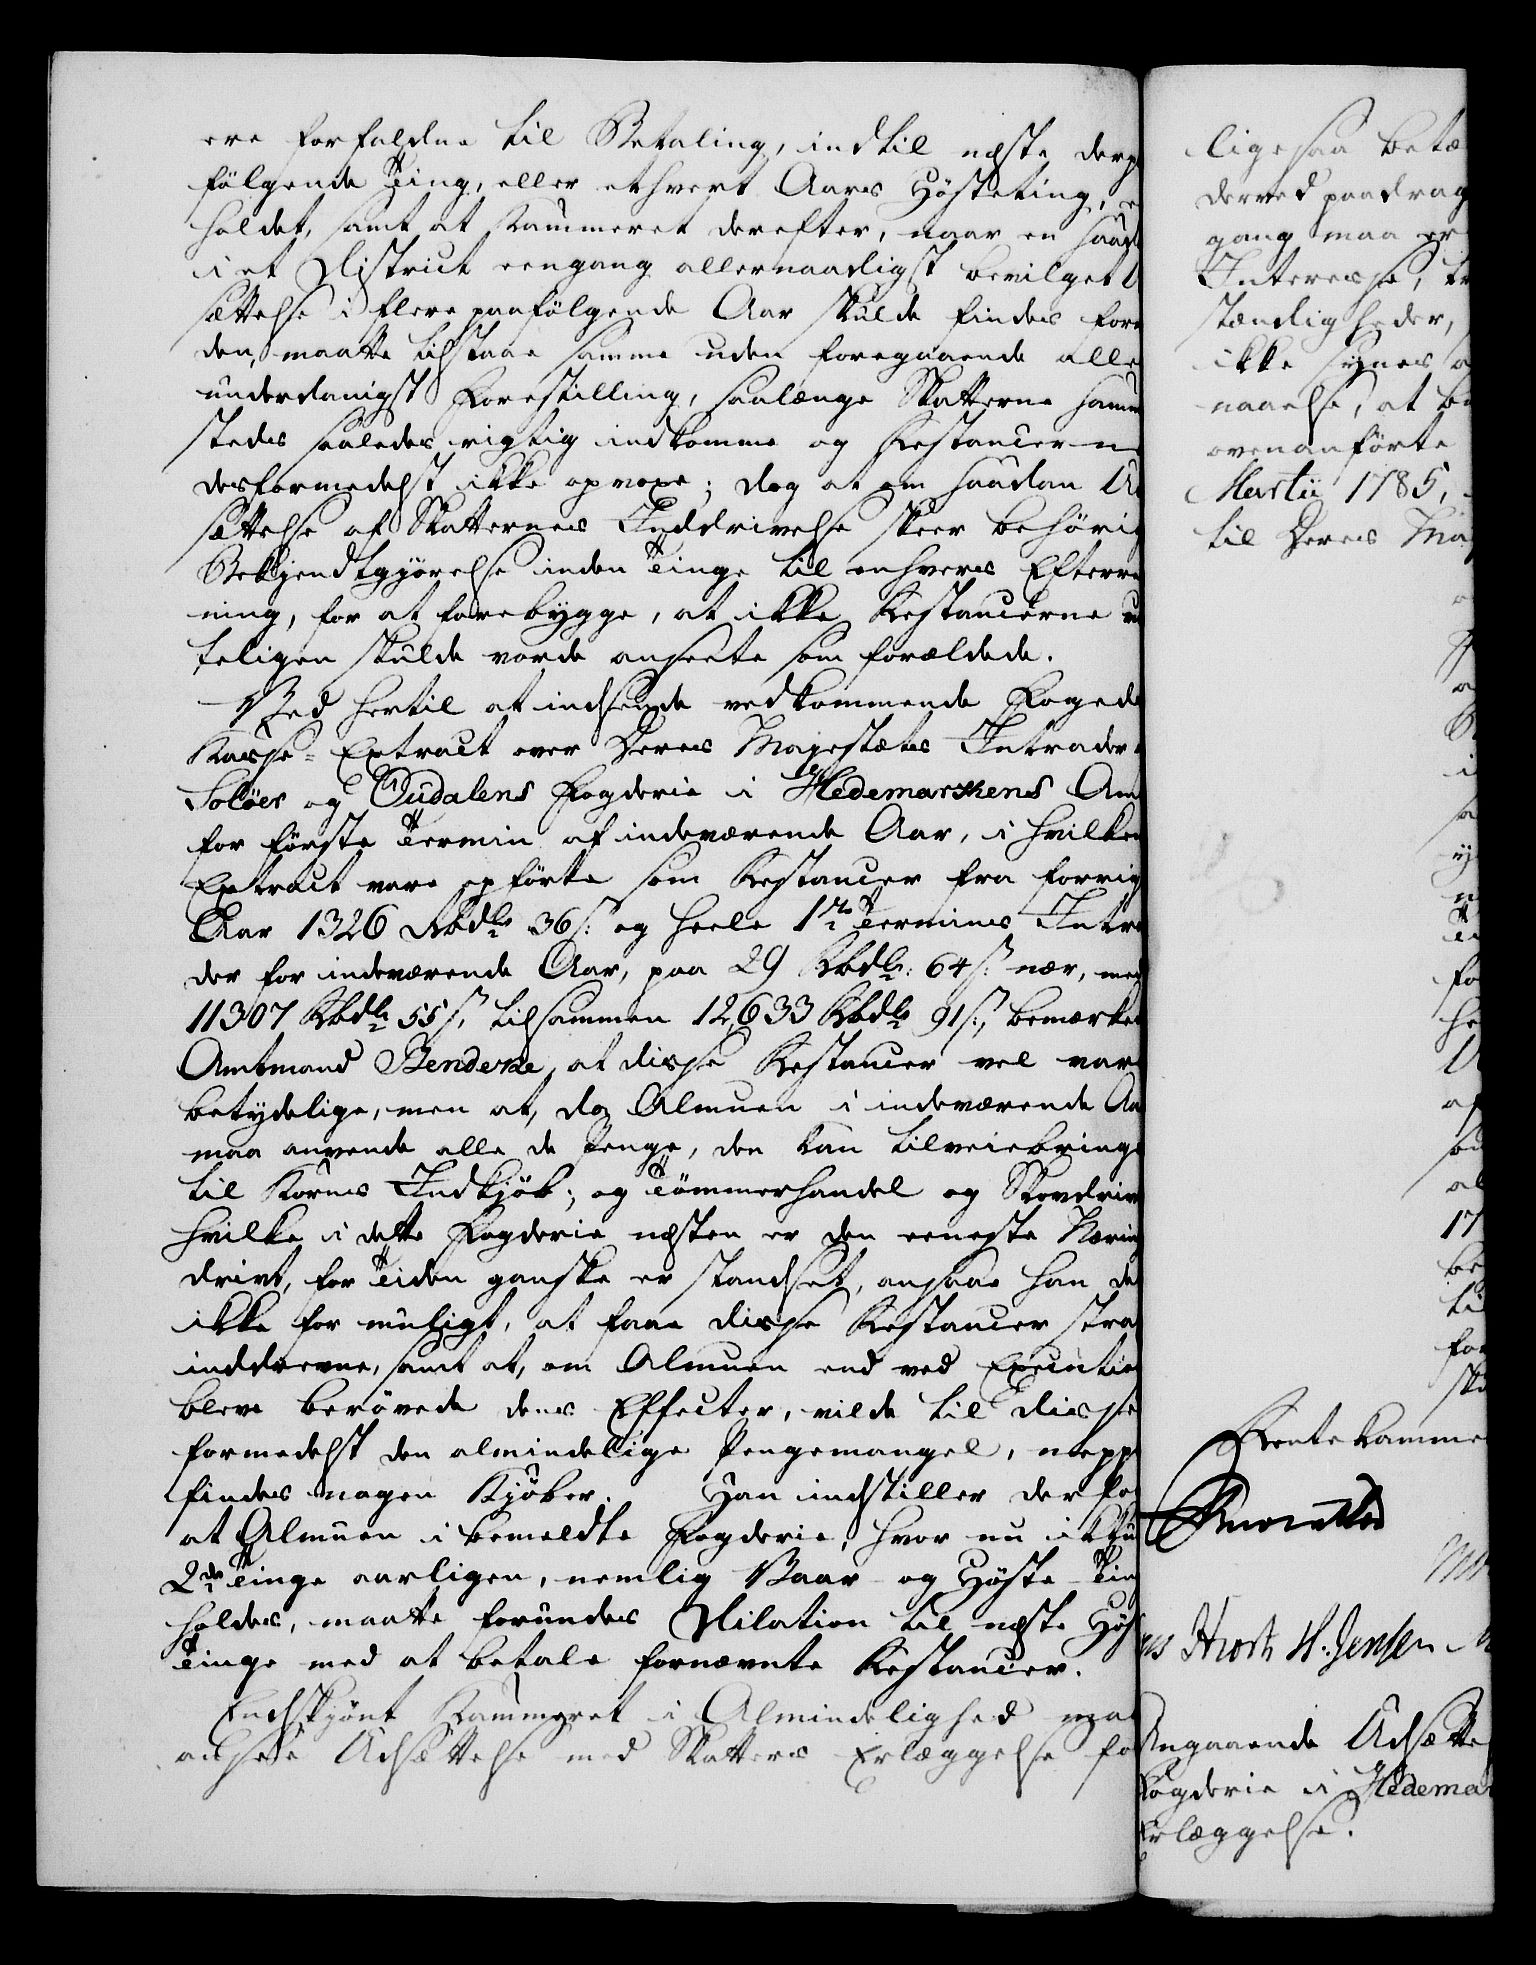 ere forfaldne til Betaling, indtil næste derp
følgende Ting, eller ethvert Aars Høsteting, e
holdet, samt at Kammeret derefter, naar en saad
i et District eengang allernaadigst bevilget U
sættelse i flere paafølgende Aar skulde findes for
den, maatte tilstaae samme uden foregaaende alle
underdanigst Forestilling, saalænge Skatterne samm
stedes saaledes rigtig indkomme og Restancerne
desformedelst ikke opvoxe; dog at om saadan Ud
sættelse af Skatternes Inddrivelse skeer behørig
Bekjendtgjørelse inden Tinge til enhvers Efterret
ning, for at forebygge, at ikke Restancerne
teligen skulde vorde ansete som forældede.
Ved hertil at indsende vedkommende Fogeds
Kasse-Extract over Deres Majestæts Intrader
Soløer og Oudalens Fogderie i Hedemarkens Am
for første Termin af indeværende Aar, i hvilken
Extract vare opførte som Restancer fra forrig
Aar 1326 Rbdlr 36 s: og heele 1ste Termines Intra
der for indeværende Aar, paa 29 Rbdlr: 64 s: nær, med
11307 Rbdlr 55 s, tilsammen 12633 Rbdlr 91 s:, bemærker
Amtmand Bendeke, at disse Restancer vel vare
betydelige, men at, da Almuen i indeværende Aar
maa anvende alle de Penge, den kan tilveiebringe
til Korns Indkjøb; og Tømmerhandel og Skovdrivt
hvilke i dette Fogderie næsten er den eeneste Nærings
drivt, for Tiden ganske er standset, ansaae han det
ikke for muligt, at faae disse Restancer strax
inddrevne, samt at, om Almuen end ved Execution
bleve berøvede dens Effecter, vilde til disse
formedelst den almindelige Pengemangel, neppe
findes nogen Kjøber. Han indstiller derfor
at Almuen i bemeldte Fogderie, hvor nu ikkun
2de Tinge aarligen, nemlig Vaar- og Høste-Ting
holdes, maatte forundes Dilation til næste Høst
Tinge med at betale fornævnte Restancer.
Endskjønt Kammeret i Almindelighed maa
ansee Udsættelse med Skatters Erlæggelse for
ligesaa betæ
derved paadrag
gang maa er
Interesse, tr
stændigheder,
ikke synes a
naaelse, at be
ovenanførte
Martii 1785,
til Deres Maj
Rentekamme
Knoruttes
Hvoslef H. Jensen
Angaaende Udsætte
Fogderie i Hedemar
Erlæggelse.